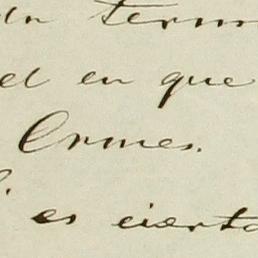 term
el en que
Ormes.
es cierto